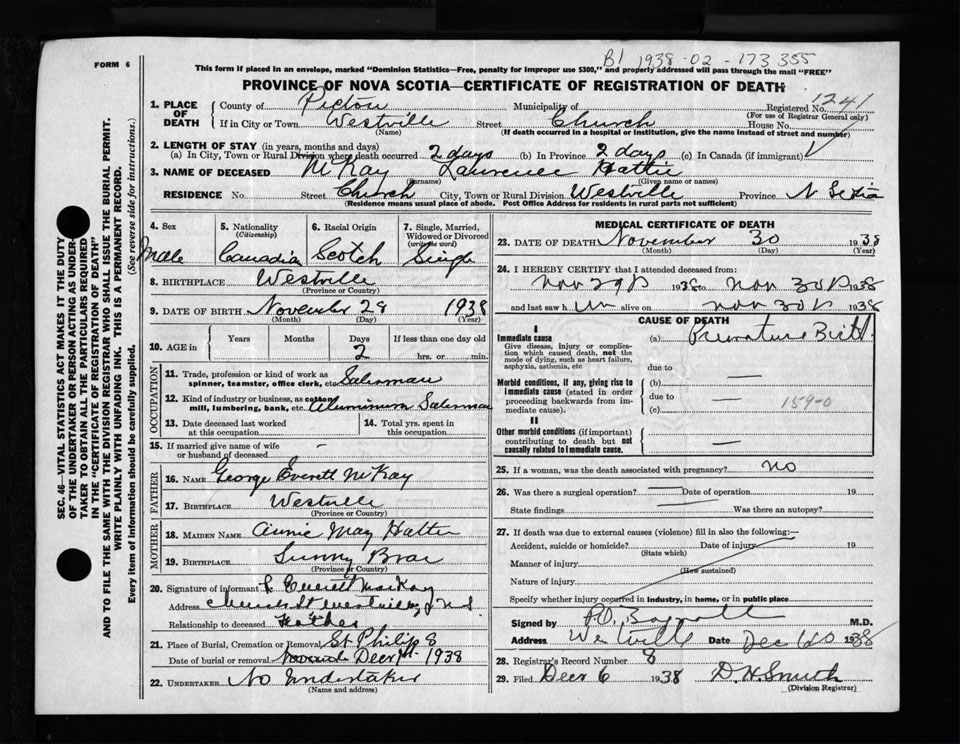 B1 1938-02-173355
FORM 6
This form if placed in an envelope, marked "Dominion Statistics—Free, penalty for improper use $300," and properly addressed will pass through the mail "FREE"
PROVINCE OF NOVA SCOTIA—CERTIFICATE OF REGISTRATION OF DEATH
1. PLACE OF DEATH County of Pictou Municipality of Registered No. 1241
(For use of Registrar General only)
If in City or Town Westville Street Church House No.
(Name) (If death occurred in a hospital or institution, give the name instead of street and number)
2. LENGTH OF STAY (in years, months and days)
(a) In City, Town or Rural Division where death occurred 2 days (b) In Province 2 days (c) In Canada (if immigrant)
3. NAME OF DECEASED McKay Laurence Hattie
(Surname) (Given name or names)
RESIDENCE No. Street Church City, Town or Rural Division Westville Province N Scotia
(Residence means usual place of abode. Post Office Address for residents in rural parts not sufficient)
4. Sex Male
5. Nationality (Citizenship) Canadian
6. Racial Origin Scotch
7. Single, Married, Widowed or Divorced (write the word) Single
8. BIRTHPLACE Westville
(Province or Country)
9. DATE OF BIRTH November 28 1938
(Month) (Day) (Year)
10. AGE in Years Months Days 2 If less than one day old hrs. or min.
OCCUPATION
11. Trade, profession or kind of work as spinner, teamster, office clerk, etc. Salesman
12. Kind of industry or business, as cotton mill, lumbering, bank, etc. Aluminum Salesman
13. Date deceased last worked at this occupation
14. Total yrs. spent in this occupation
15. If married give name of wife or husband of deceased -
FATHER
16. NAME George Everett McKay
17. BIRTHPLACE Westville
(Province or Country)
MOTHER
18. MAIDEN NAME Annie May Hattie
19. BIRTHPLACE Sunny Brae
(Province or Country)
20. Signature of informant Everett MacKay
Address Church St Westville N S
Relationship to deceased Father
21. Place of Burial, Cremation or Removal St Philips
Date of burial or removal Decr 1st 1938
22. UNDERTAKER No Undertaker
(Name and address)
MEDICAL CERTIFICATE OF DEATH
23. DATE OF DEATH November 30 1938
(Month) (Day) (Year)
24. I HEREBY CERTIFY that I attended deceased from
Nov 29th 1938 to Nov 30th 1938
and last saw him alive on Nov 30th 1938
CAUSE OF DEATH
I
Immediate cause (a) Premature Birth
Give disease, injury or complication which caused death, not the mode of dying, such as heart failure, asphyxia, asthenia, etc
due to
Morbid conditions, if any, giving rise to immediate cause (stated in order proceeding backwards from immediate cause) (b) —
due to —
(c) 159-0
II
Other morbid conditions (if important) contributing to death but not causally related to Immediate cause. —
25. If a woman, was the death associated with pregnancy? no
26. Was there a surgical operation? — Date of operation 19
State findings — Was there an autopsy?
27. If death was due to external causes (violence) fill in also the following:—
Accident, suicide or homicide? Date of injury 19
(State which)
Manner of injury
(How sustained)
Nature of injury
Specify whether injury occurred in industry, in home, or in public place
Signed by M.D.
Address Westville Date Dec 1938
28. Registrar's Record Number 8
29. Filed Decr 6 1938 D. H. Smith
(Division Registrar)
SEC. 46—VITAL STATISTICS ACT MAKES IT THE DUTY
OF THE UNDERTAKER OR PERSON ACTING AS UNDER-
TAKER TO OBTAIN ALL THE PARTICULARS REQUIRED
IN THE "CERTIFICATE OF REGISTRATION OF DEATH"
AND TO FILE THE SAME WITH THE DIVISION REGISTRAR WHO SHALL ISSUE THE BURIAL PERMIT.
WRITE PLAINLY WITH UNFADING INK. THIS IS A PERMANENT RECORD.
Every item of information should be carefully supplied. (See reverse side for instructions.)